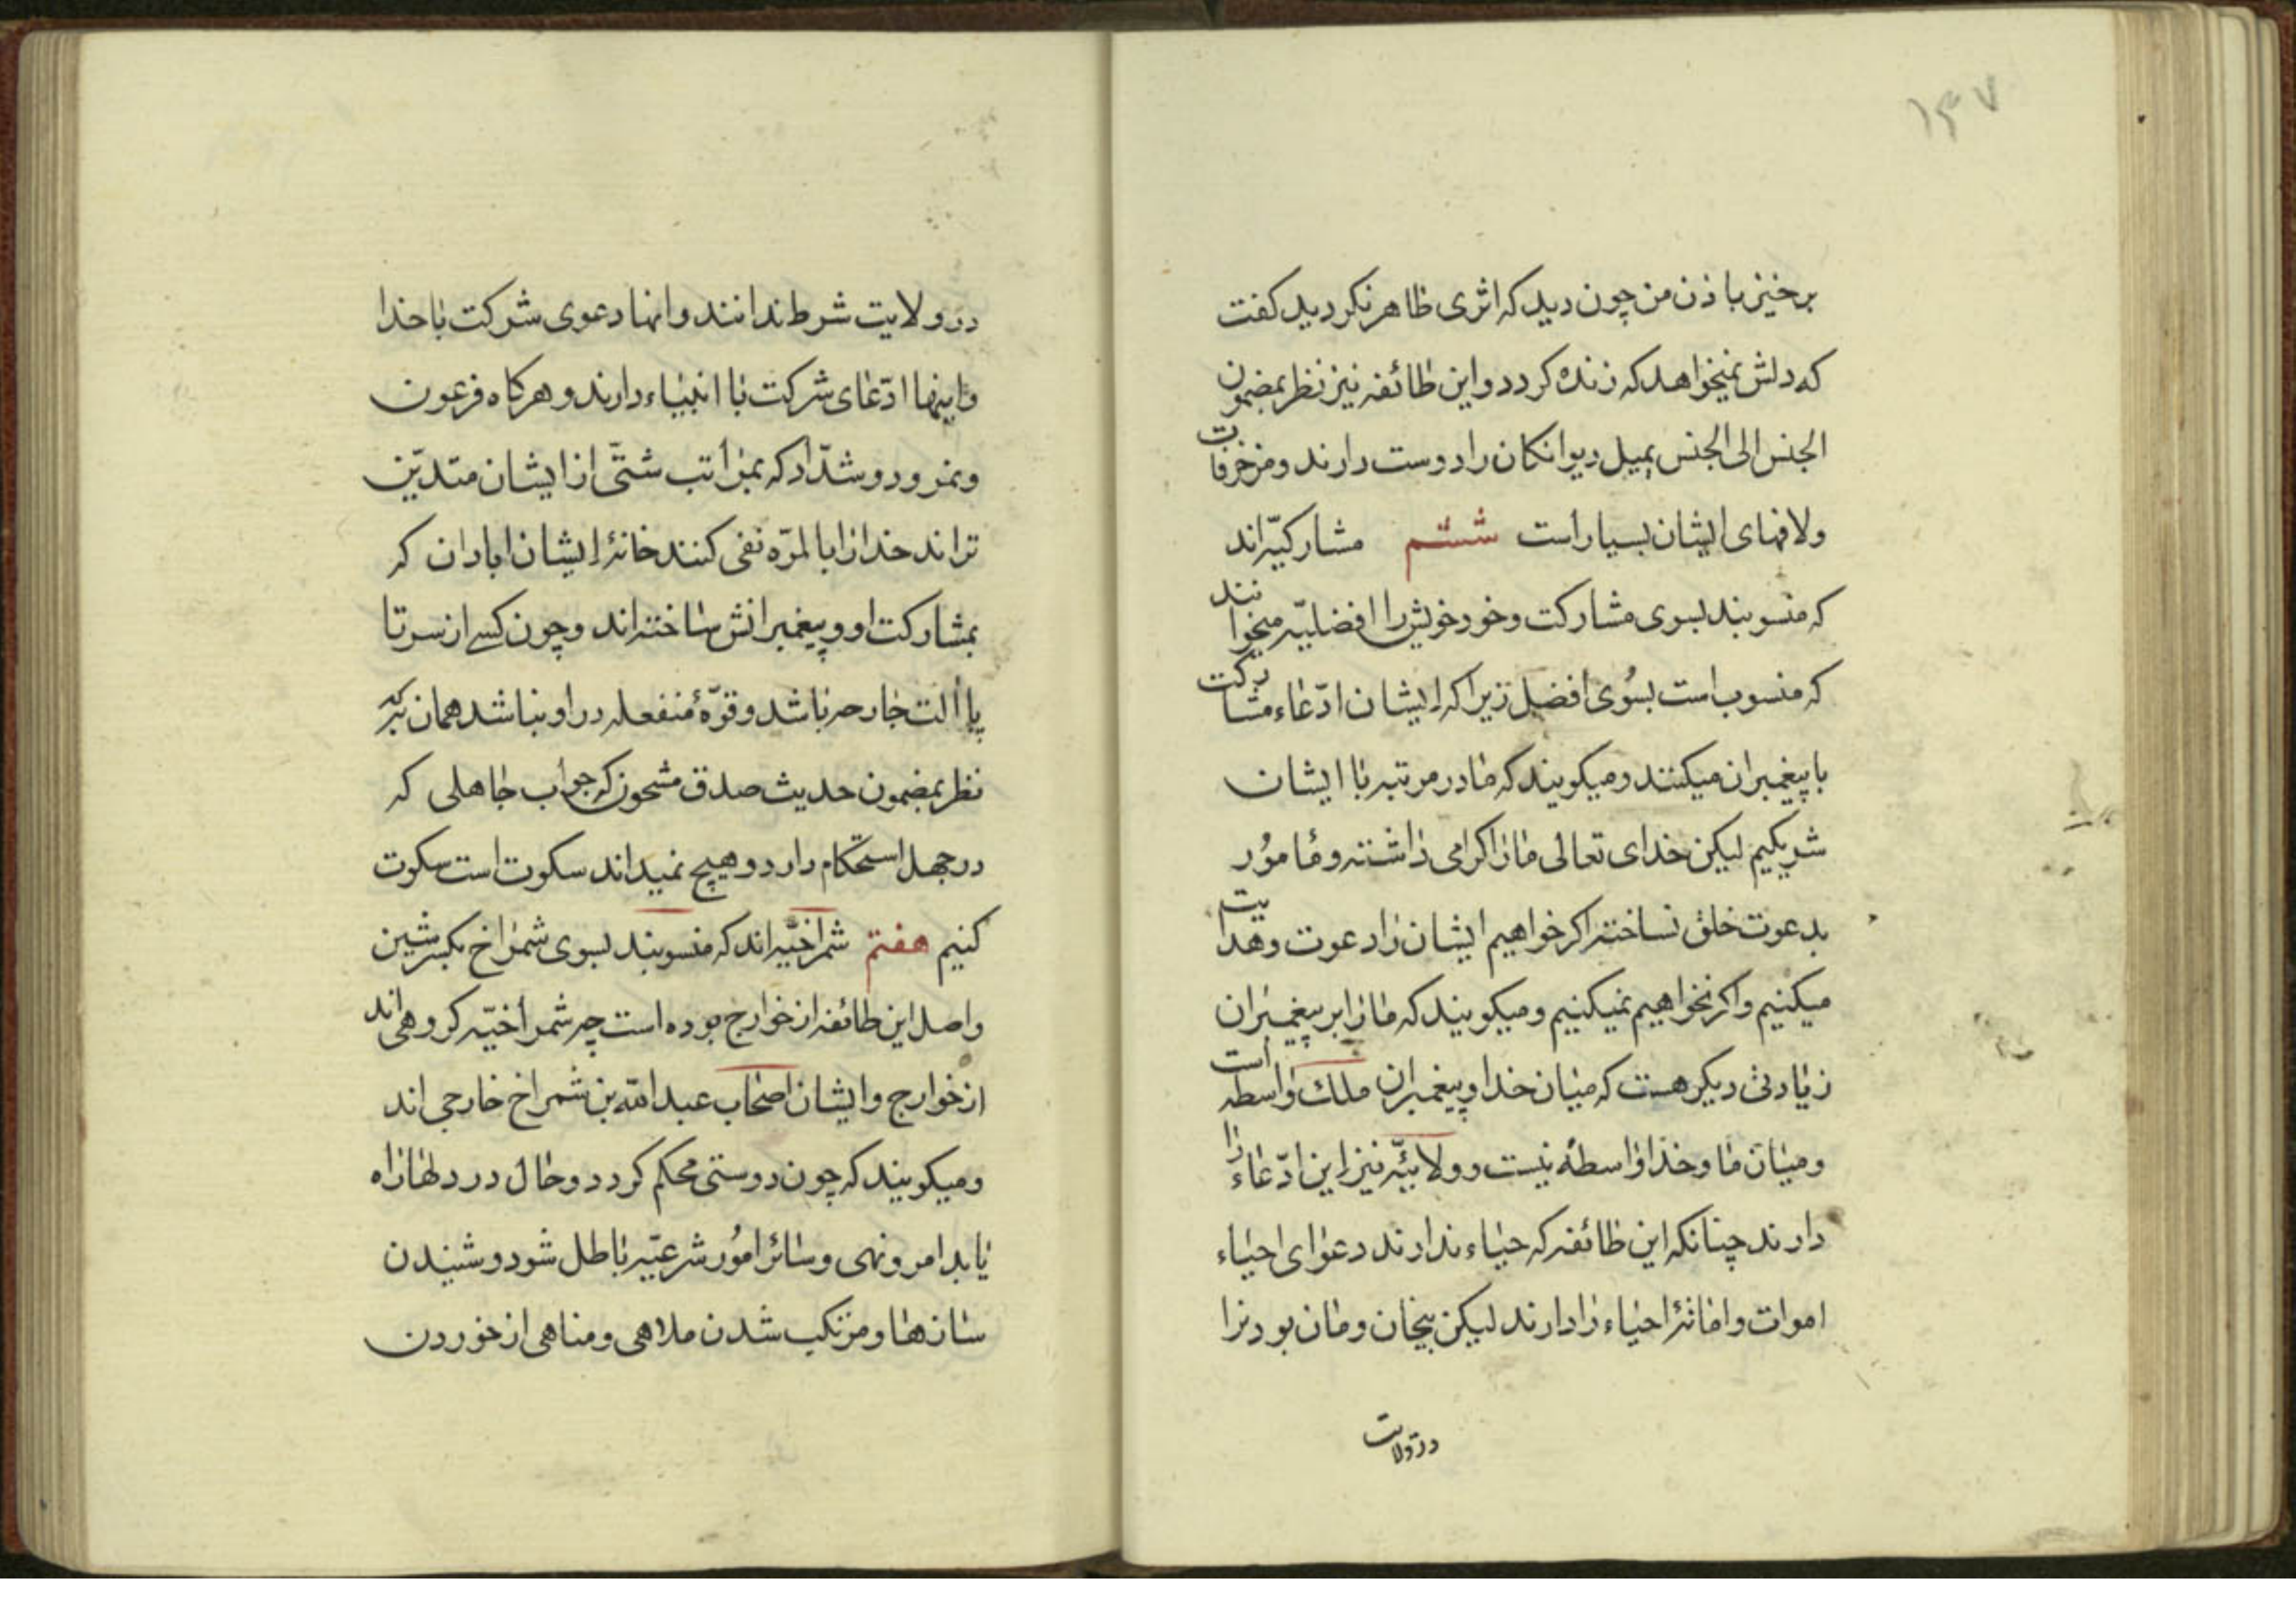 ۱۴۷
برخیز باذن من چون دید که اثری ظاهر نکردید کفت
که دلش نمیخواهد که زنده کردد و این طائفه نیز نظر بمضمون
الجنس الی الجنس یمیل دیوانکان را دوست دارند و مزخرفات
ولافهای ایشان بسیار است ششم مشارکیّه‌اند
که منسوبند بسوی مشارکت و خود خویش را افضلیّه میخوانند
که منسوب است بسوی افضل زیرا که ایشان ادّعاء مشارکت
با پیغمبران میکنند و میکویند که ما در مرتبه با ایشان
شریکیم لیکن خدای تعالی ما را کرامی داشته و مامور
بدعوت خلق نساخته اکر خواهیم ایشان را دعوت و هدایت
میکنیم و اکر نخواهیم نمیکنیم و میکویند که ما را بر پیغمبران
زیادتی دیکر هست که میان خدا و پیغمبران ملک واسطه است
و میان ما و خدا واسطهٔ نیست و ولائیّه نیز این ادّعاء را
دارند چنانکه این طائفه که حیاء ندارند دعوای احیاء
اموات و اماتهٔ احیاء را دارند لیکن بیخان و مان بودنرا
در ولایت
در ولایت شرط ندانند و انها دعوی شرکت با خدا
و اینها ادّعای شرکت با انبیاء دارند و هرکاه فرعون
و نمرود و شدّاد که بمراتب شتّی از ایشان متدیّن
تراند خدا را بالمرّه نفی کنند خانهٔ ایشان ابادان که
بمشارکت او و پیغمبرانش ساخته‌اند و چون کسے از سر تا
پا الت جارحه باشد و قوّهٔ منفعله در او نباشد همان به که
نظر بمضمون حدیث صدق مشحون که جواب جاهلی که
در جهل استحکام دارد و هیچ نمیداند سکوت است سکوت
کنیم هفتم شمراخیّه‌اند که منسوبند بسوی شمراخ بکسر شین
و اصل این طائفه از خوارج بوده است چه شمراخیّه کروهی‌اند
از خوارج و ایشان اصحاب عبد الله بن شمراخ خارجی اند
و میکویند که چون دوستی محکم کردد و حال در دلها راه
یابد امر و نهی و سائر امور شرعیّه باطل شود و شنیدن
سازها و مرتکب شدن ملاهی و مناهی از خوردن